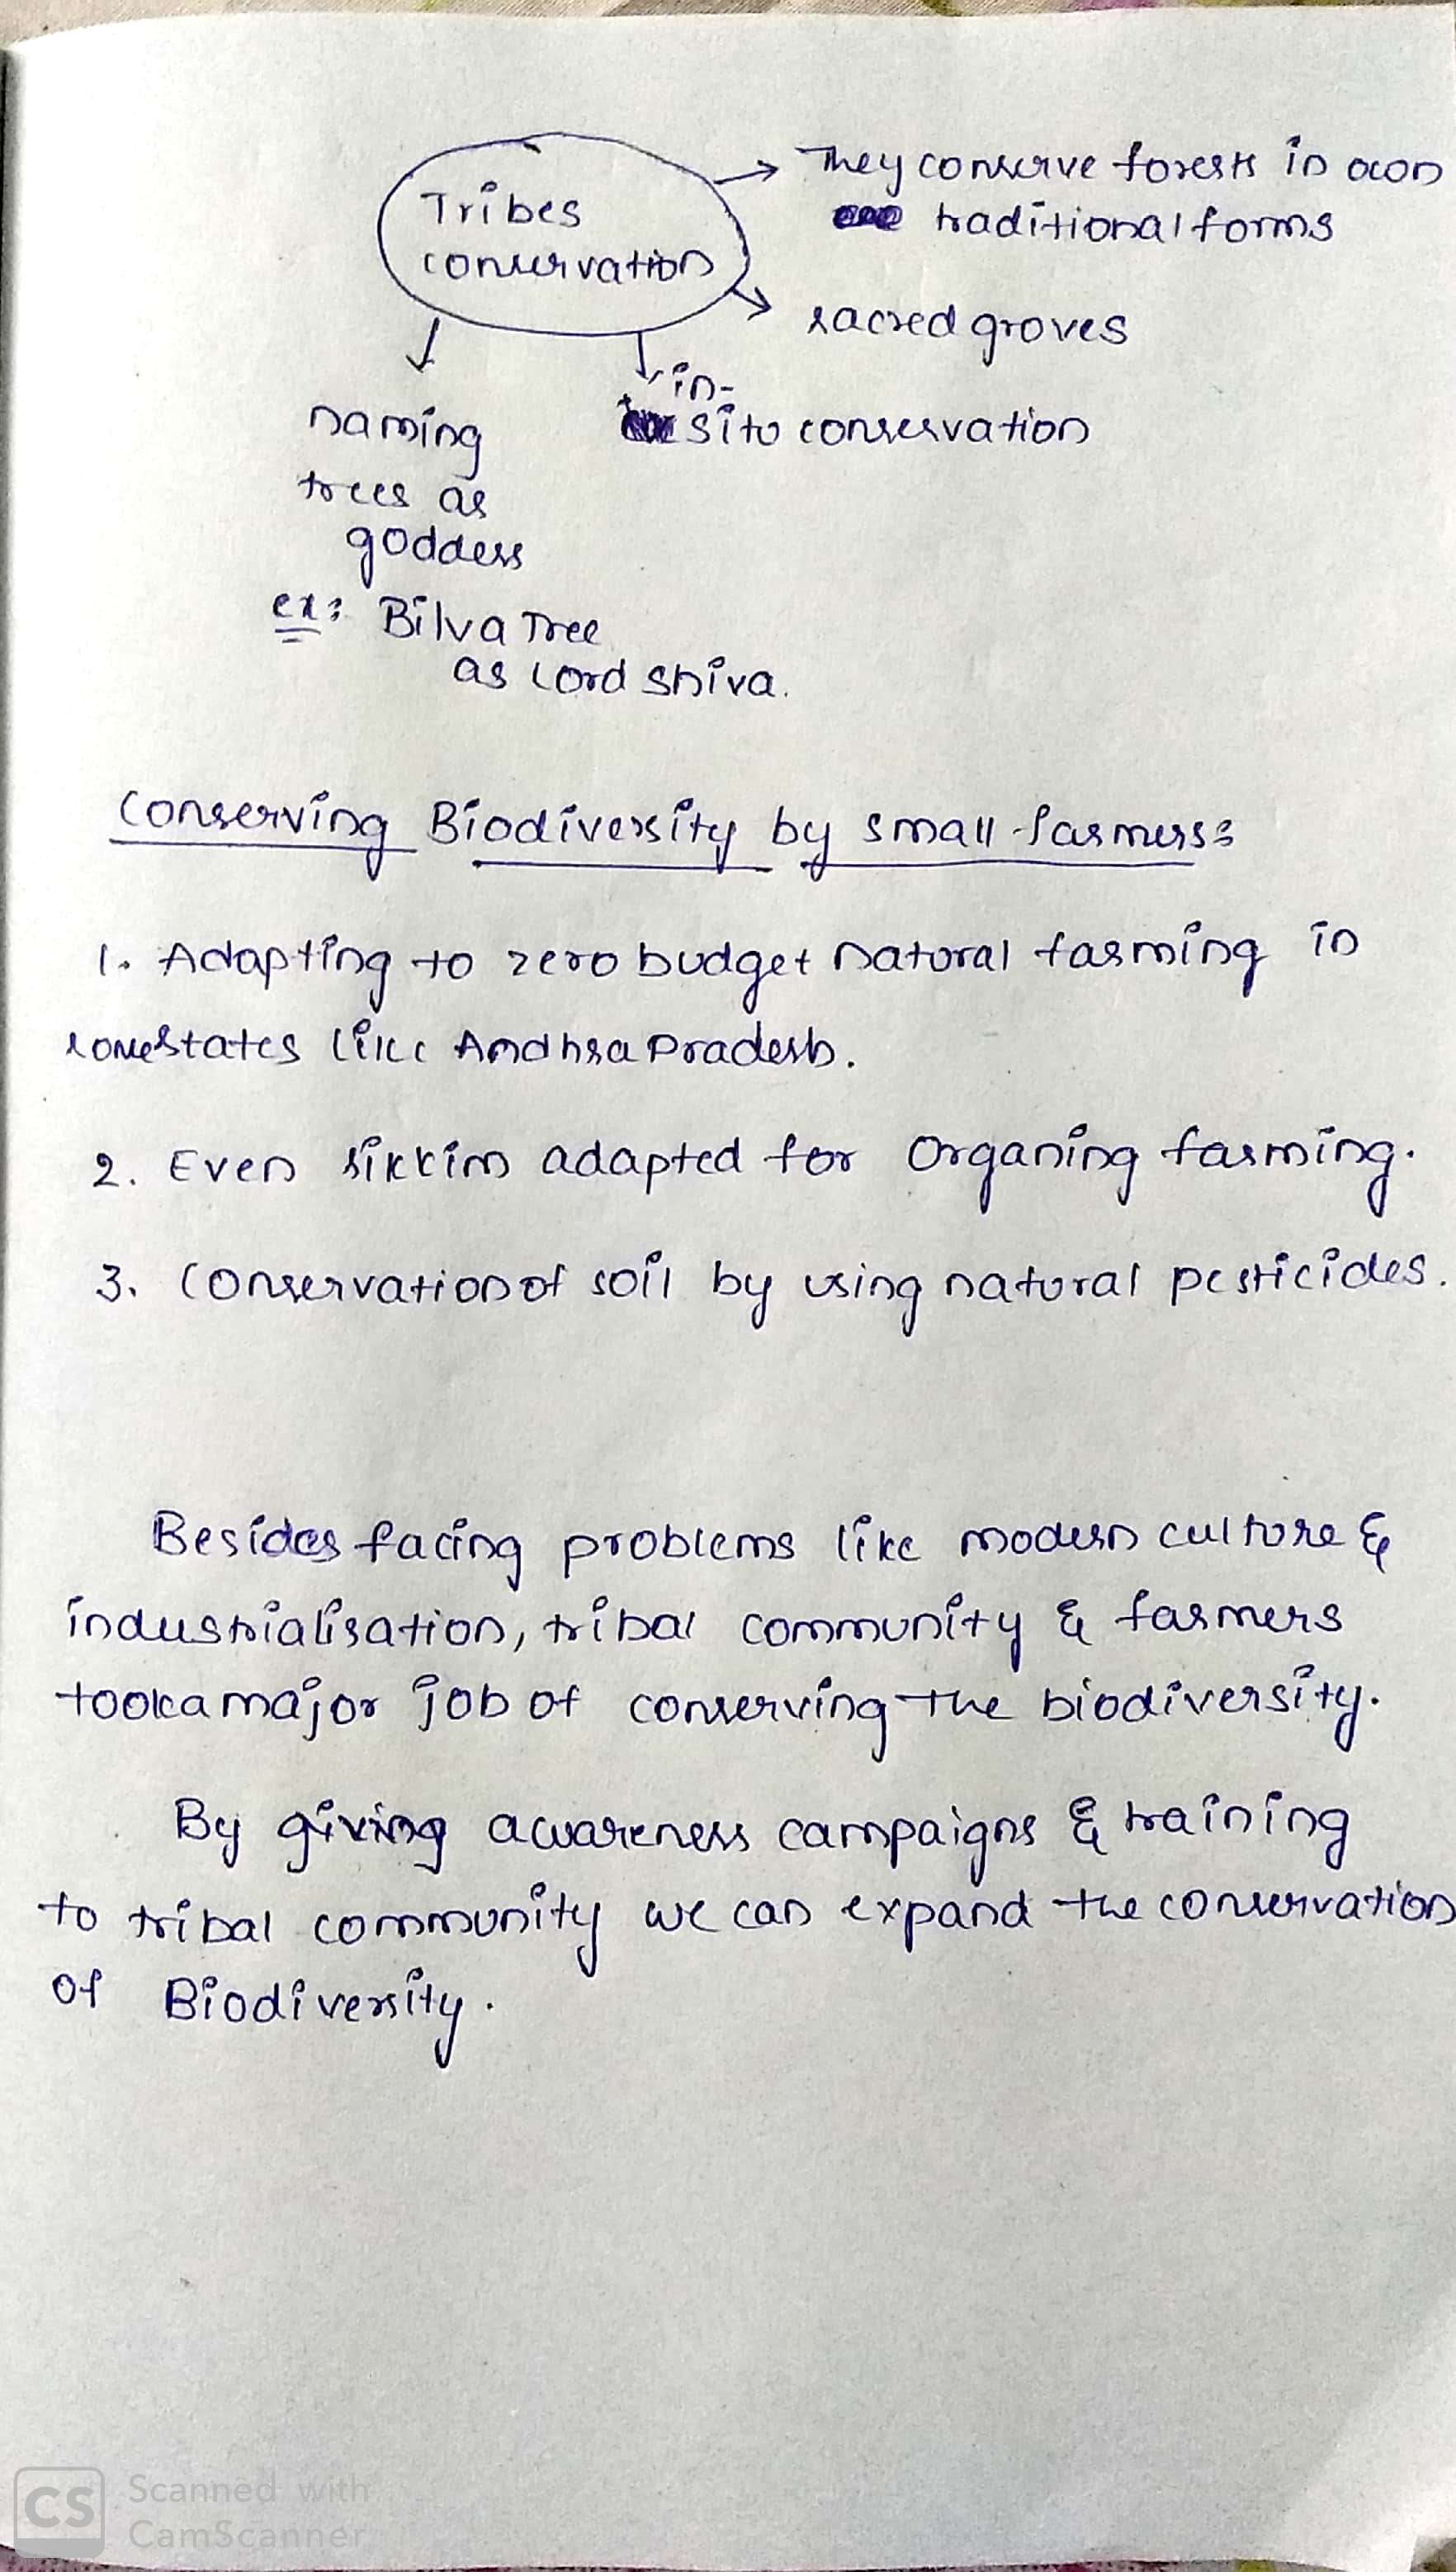 Tribes
conservation
They conserve forests in own
traditional forms
sacred groves
in-
situ conservation
naming
trees as
goddess
ex: Bilva Tree
as Lord Shiva.
Conserving Biodiversity by small farmers:
1. Adapting to zero budget natural farming in
some states like Andhra Pradesh.
2. Even Sikkim adapted for Organing farming.
3. Conservation of soil by using natural pesticides.
Besides facing problems like modern culture &
industrialisation, tribal community & farmers
took a major job of conserving the biodiversity.
By giving awareness campaigns & training
to tribal community we can expand the conservation
of Biodiversity.
CS Scanned with
CamScanner